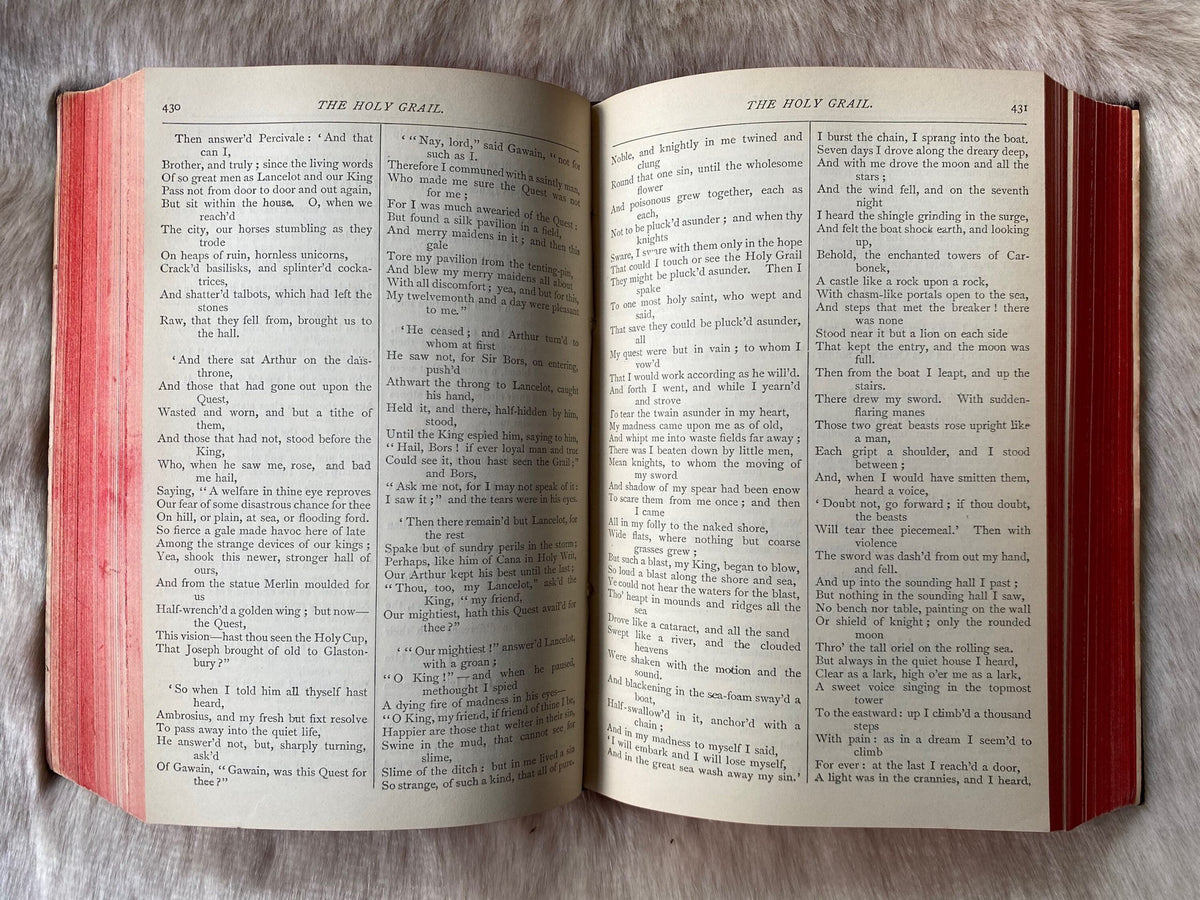 430
THE HOLY GRAIL.
Then answer'd Percivale : 'And that
can I,
Brother, and truly ; since the living words
Of so great men as Lancelot and our King
Pass not from door to door and out again,
But sit within the house. O, when we
reach'd
The city, our horses stumbling as they
trode
On heaps of ruin, hornless unicorns,
Crack'd basilisks, and splinter'd cocka-
trices,
And shatter'd talbots, which had left the
stones
Raw, that they fell from, brought us to
the hall.
'And there sat Arthur on the daïs-
throne,
And those that had gone out upon the
Quest,
Wasted and worn, and but a tithe of
them,
And those that had not, stood before the
King,
Who, when he saw me, rose, and bad
me hail,
Saying, "A welfare in thine eye reproves
Our fear of some disastrous chance for thee
On hill, or plain, at sea, or flooding ford.
So fierce a gale made havoc here of late
Among the strange devices of our kings ;
Yea, shook this newer, stronger hall of
ours,
And from the statue Merlin moulded for
us
Half-wrench'd a golden wing ; but now—
the Quest,
This vision—hast thou seen the Holy Cup,
That Joseph brought of old to Glaston-
bury ?"
'So when I told him all thyself hast
heard,
Ambrosius, and my fresh but fixt resolve
To pass away into the quiet life,
He answer'd not, but, sharply turning,
ask'd
Of Gawain, "Gawain, was this Quest for
thee ?"
' "Nay, lord," said Gawain, "not for
such as I.
Therefore I communed with a saintly man,
Who made me sure the Quest was not
for me ;
For I was much awearied of the Quest :
But found a silk pavilion in a field,
And merry maidens in it ; and then this
gale
Tore my pavilion from the tenting-pin,
And blew my merry maidens all about
With all discomfort ; yea, and but for this,
My twelvemonth and a day were pleasant
to me."
'He ceased ; and Arthur turn'd to
whom at first
He saw not, for Sir Bors, on entering,
push'd
Athwart the throng to Lancelot, caught
his hand,
Held it, and there, half-hidden by him,
stood,
Until the King espied him, saying to him,
"Hail, Bors ! if ever loyal man and true
Could see it, thou hast seen the Grail ;"
and Bors,
"Ask me not, for I may not speak of it :
I saw it ;" and the tears were in his eyes.
'Then there remain'd but Lancelot, for
the rest
Spake but of sundry perils in the storm ;
Perhaps, like him of Cana in Holy Writ,
Our Arthur kept his best until the last ;
"Thou, too, my Lancelot," ask'd the
King, "my friend,
Our mightiest, hath this Quest avail'd for
thee ?"
' "Our mightiest !" answer'd Lancelot,
with a groan ;
"O King !"—and when he paused,
methought I spied
A dying fire of madness in his eyes—
"O King, my friend, if friend of thine I be,
Happier are those that welter in their sin,
Swine in the mud, that cannot see for
slime,
Slime of the ditch : but in me lived a sin
So strange, of such a kind, that all of pure,
THE HOLY GRAIL.
431
Noble, and knightly in me twined and
clung
Round that one sin, until the wholesome
flower
And poisonous grew together, each as
each,
Not to be pluck'd asunder ; and when thy
knights
Sware, I sware with them only in the hope
That could I touch or see the Holy Grail
They might be pluck'd asunder. Then I
spake
To one most holy saint, who wept and
said,
That save they could be pluck'd asunder,
all
My quest were but in vain ; to whom I
vow'd
That I would work according as he will'd.
And forth I went, and while I yearn'd
and strove
To tear the twain asunder in my heart,
My madness came upon me as of old,
And whipt me into waste fields far away ;
There was I beaten down by little men,
Mean knights, to whom the moving of
my sword
And shadow of my spear had been enow
To scare them from me once ; and then
I came
All in my folly to the naked shore,
Wide flats, where nothing but coarse
grasses grew ;
But such a blast, my King, began to blow,
So loud a blast along the shore and sea,
Ye could not hear the waters for the blast,
Tho' heapt in mounds and ridges all the
sea
Drove like a cataract, and all the sand
Swept like a river, and the clouded
heavens
Were shaken with the motion and the
sound.
And blackening in the sea-foam sway'd a
boat,
Half-swallow'd in it, anchor'd with a
chain ;
And in my madness to myself I said,
'I will embark and I will lose myself,
And in the great sea wash away my sin.'
I burst the chain, I sprang into the boat.
Seven days I drove along the dreary deep,
And with me drove the moon and all the
stars ;
And the wind fell, and on the seventh
night
I heard the shingle grinding in the surge,
And felt the boat shock earth, and looking
up,
Behold, the enchanted towers of Car-
bonek,
A castle like a rock upon a rock,
With chasm-like portals open to the sea,
And steps that met the breaker ! there
was none
Stood near it but a lion on each side
That kept the entry, and the moon was
full.
Then from the boat I leapt, and up the
stairs.
There drew my sword. With sudden-
flaring manes
Those two great beasts rose upright like
a man,
Each gript a shoulder, and I stood
between ;
And, when I would have smitten them,
heard a voice,
'Doubt not, go forward ; if thou doubt,
the beasts
Will tear thee piecemeal.' Then with
violence
The sword was dash'd from out my hand,
and fell.
And up into the sounding hall I past ;
But nothing in the sounding hall I saw,
No bench nor table, painting on the wall
Or shield of knight ; only the rounded
moon
Thro' the tall oriel on the rolling sea.
But always in the quiet house I heard,
Clear as a lark, high o'er me as a lark,
A sweet voice singing in the topmost
tower
To the eastward : up I climb'd a thousand
steps
With pain : as in a dream I seem'd to
climb
For ever : at the last I reach'd a door,
A light was in the crannies, and I heard,